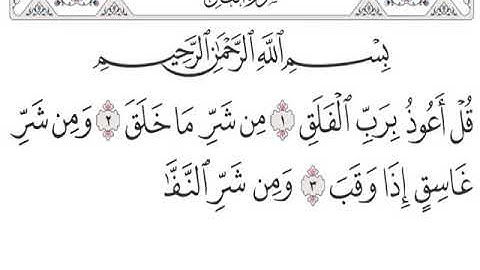 بِسْمِ اللَّهِ الرَّحْمَٰنِ الرَّحِيمِ
قُلْ أَعُوذُ بِرَبِّ الْفَلَقِ ١ مِن شَرِّ مَا خَلَقَ ٢ وَمِن شَرِّ
غَاسِقٍ إِذَا وَقَبَ ٣ وَمِن شَرِّ النَّفَّٰ